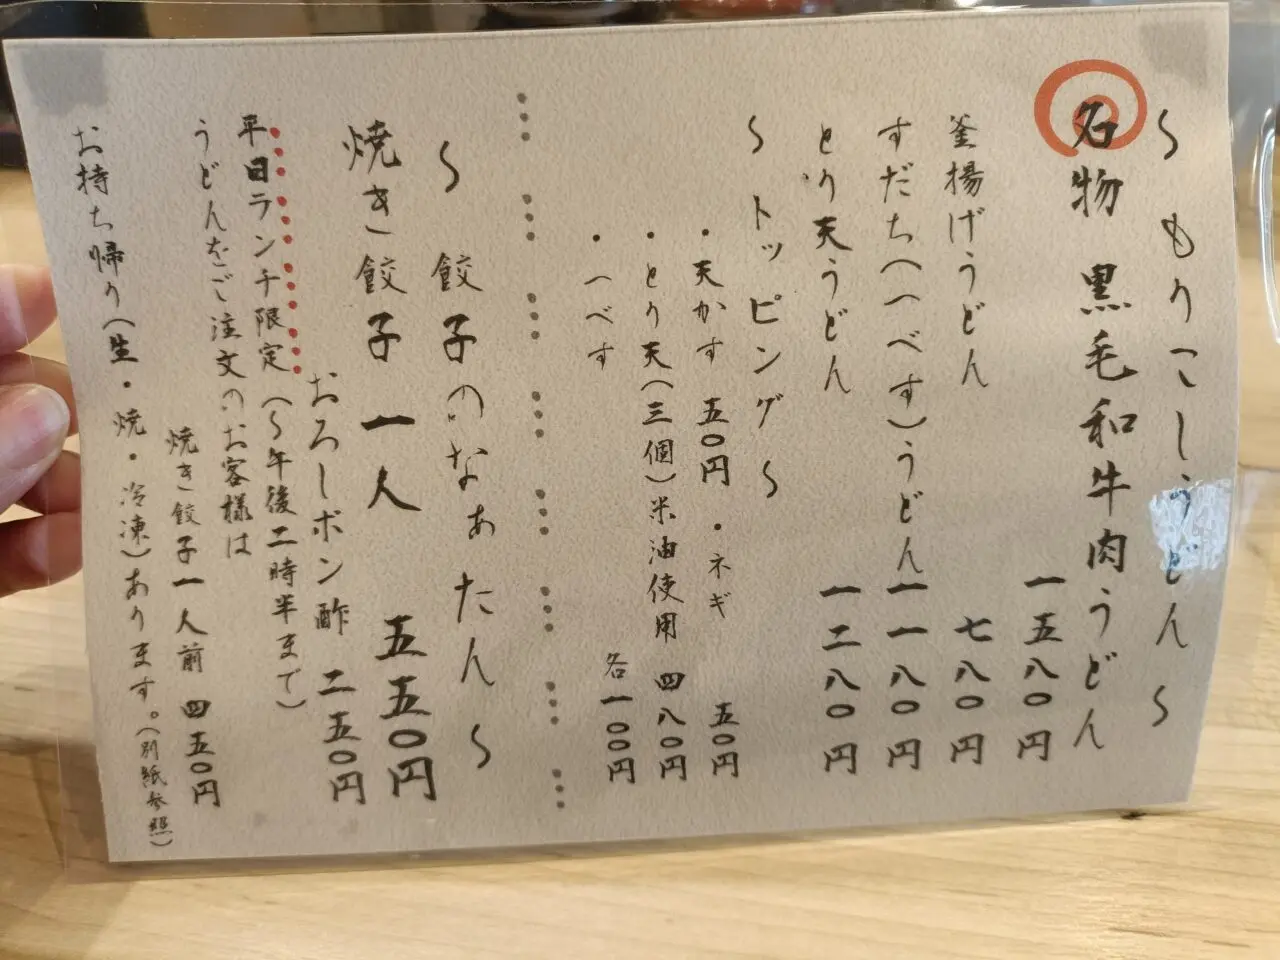 〜 もりこしうどん 〜
名物 黒毛和牛肉うどん 一五八〇円
釜揚げうどん 七八〇円
すだち(へべす)うどん 一一八〇円
とり天うどん 一二八〇円
〜 トッピング 〜
・天かす 五〇円 ・ネギ 五〇円
・とり天(三個)米油使用 四八〇円
・へべす 各一〇〇円
〜 餃子のなぁたん 〜
焼き餃子 一人 五五〇円
おろしポン酢 二五〇円
平日ランチ限定(〜午後二時半まで)
うどんをご注文のお客様は
焼き餃子一人前 四五〇円
お持ち帰り(生・焼・冷凍)あります。(別紙参照)